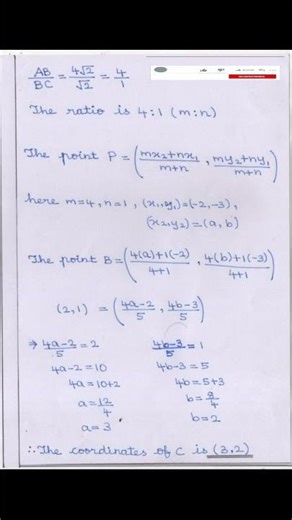 AB/BC = 4√2/√2 = 4/1
The ratio is 4:1 (m:n)
The point P = (mx₂+nx₁/m+n, my₂+ny₁/m+n)
here m=4, n=1, (x₁,y₁)=(-2,-3),
(x₂,y₂)=(a,b)
The point B = (4(a)+1(-2)/4+1, 4(b)+1(-3)/4+1)
(2,1) = (4a-2/5, 4b-3/5)
⇒ 4a-2/5 = 2 4b-3/5 = 1
4a-2=10 4b-3=5
4a=10+2 4b=5+3
a=12/4 b=8/4
a=3 b=2
∴ The coordinates of C is (3.2)